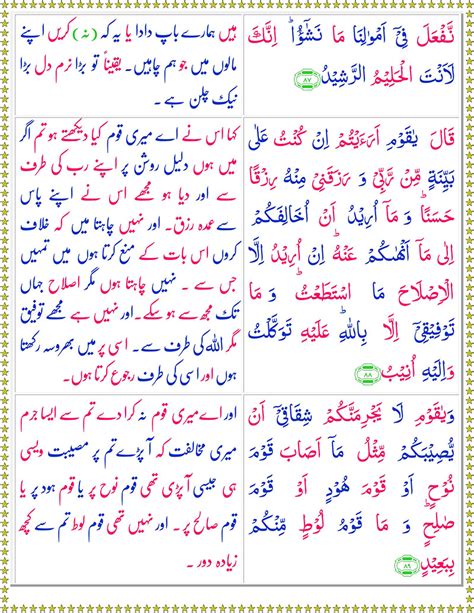 نَّفۡعَلَ فِیۡۤ اَمۡوٰلِنَا مَا نَشٰٓؤُا ؕ اِنَّکَ
لَاَنۡتَ الۡحَلِیۡمُ الرَّشِیۡدُ ﴿۸۷﴾
ہیں ہمارے باپ دادا یا یہ کہ (نہ) کریں اپنے
مالوں میں جو ہم چاہیں۔ یقیناً تو بڑا نرم دل بڑا
نیک چلن ہے۔
قَالَ یٰقَوۡمِ اَرَءَیۡتُمۡ اِنۡ کُنۡتُ عَلٰی
بَیِّنَۃٍ مِّنۡ رَّبِّیۡ وَ رَزَقَنِیۡ مِنۡہُ رِزۡقًا
حَسَنًا ؕ وَ مَاۤ اُرِیۡدُ اَنۡ اُخَالِفَکُمۡ
اِلٰی مَاۤ اَنۡہٰکُمۡ عَنۡہُ ؕ اِنۡ اُرِیۡدُ اِلَّا
الۡاِصۡلَاحَ مَا اسۡتَطَعۡتُ ؕ وَ مَا
تَوۡفِیۡقِیۡۤ اِلَّا بِاللّٰہِ ؕ عَلَیۡہِ تَوَکَّلۡتُ
وَ اِلَیۡہِ اُنِیۡبُ ﴿۸۸﴾
کہا اس نے اے میری قوم کیا دیکھتے ہو تم اگر
میں ہوں دلیل روشن پر اپنے رب کی طرف
سے اور دیا ہو مجھے اس نے اپنے پاس
سے عمدہ رزق۔ اور نہیں چاہتا میں کہ خلاف
کروں اس بات کے منع کرتا ہوں میں تمہیں
جس سے ۔ نہیں چاہتا ہوں مگر اصلاح جہاں
تک مجھ سے ہو سکے۔ اور نہیں ہے مجھے توفیق
مگر اللہ کی طرف سے۔ اسی پر میں بھروسہ رکھتا
ہوں اور اسی کی طرف رجوع کرتا ہوں۔
وَ یٰقَوۡمِ لَا یَجۡرِمَنَّکُمۡ شِقَاقِیۡۤ اَنۡ
یُّصِیۡبَکُمۡ مِّثۡلُ مَاۤ اَصَابَ قَوۡمَ
نُوۡحٍ اَوۡ قَوۡمَ ہُوۡدٍ اَوۡ قَوۡمَ
صٰلِحٍ ؕ وَ مَا قَوۡمُ لُوۡطٍ مِّنۡکُمۡ
بِبَعِیۡدٍ ﴿۸۹﴾
اور اے میری قوم نہ کرا دے تم سے ایسا جرم
میری مخالفت کہ آ پڑے تم پر مصیبت ویسی
ہی جیسی آ پڑی تھی قوم نوح پر یا قوم ہود پر یا
قوم صالح پر۔ اور نہیں تھی قوم لوط تم سے کچھ
زیادہ دور ۔